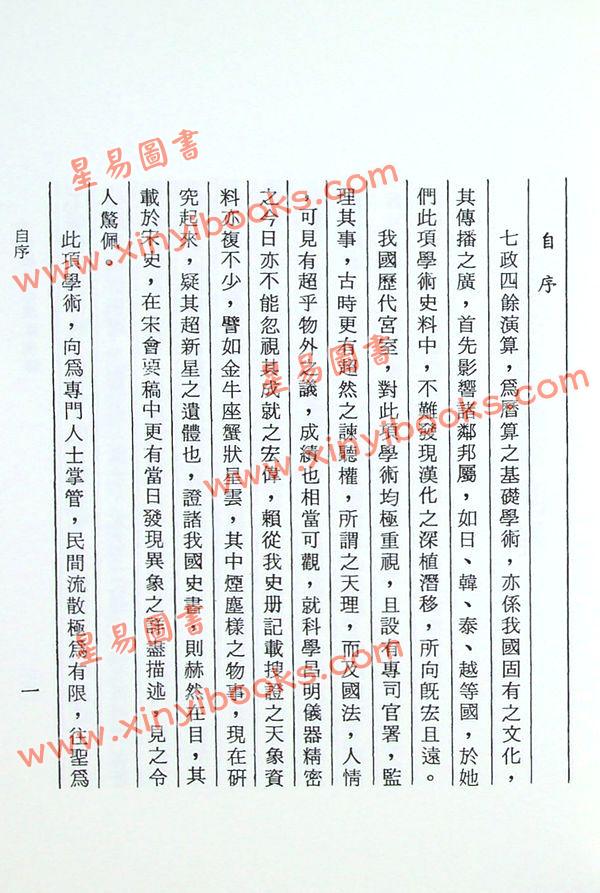 自序
七政四餘演算，為曆算之基礎學術，亦係我國固有之文化，
其傳播之廣，首先影響諸鄰邦屬，如日、韓、泰、越等國，於她
們此項學術史料中，不難發現漢化之深植潛移，所向既宏且遠。
我國歷代宮室，對此項學術均極重視，且設有專司官署，監
理其事，古時更有超然之諫聽權，所謂之天理，而及國法，人情
，可見有超乎物外之議，成績也相當可觀，就科學昌明儀器精密
之今日亦不能忽視其成就之宏偉，賴從我史册記載搜證之天象資
料亦復不少，譬如金牛座蟹狀星雲，其中煙塵樣之物事，現在研
究起來，疑其超新星之遺體也，證諸我國史書，則赫然在目，其
載於宋史，在宋會要稿中更有當日發現異象之詳盡描述，見之令
人驚佩。
此項學術，向為專門人士掌管，民間流散極為有限，往聖為
自序
一
星易圖書
www.xinyibooks.com
星易圖書
www.xinyibooks.com
星易圖書
www.xinyibooks.com